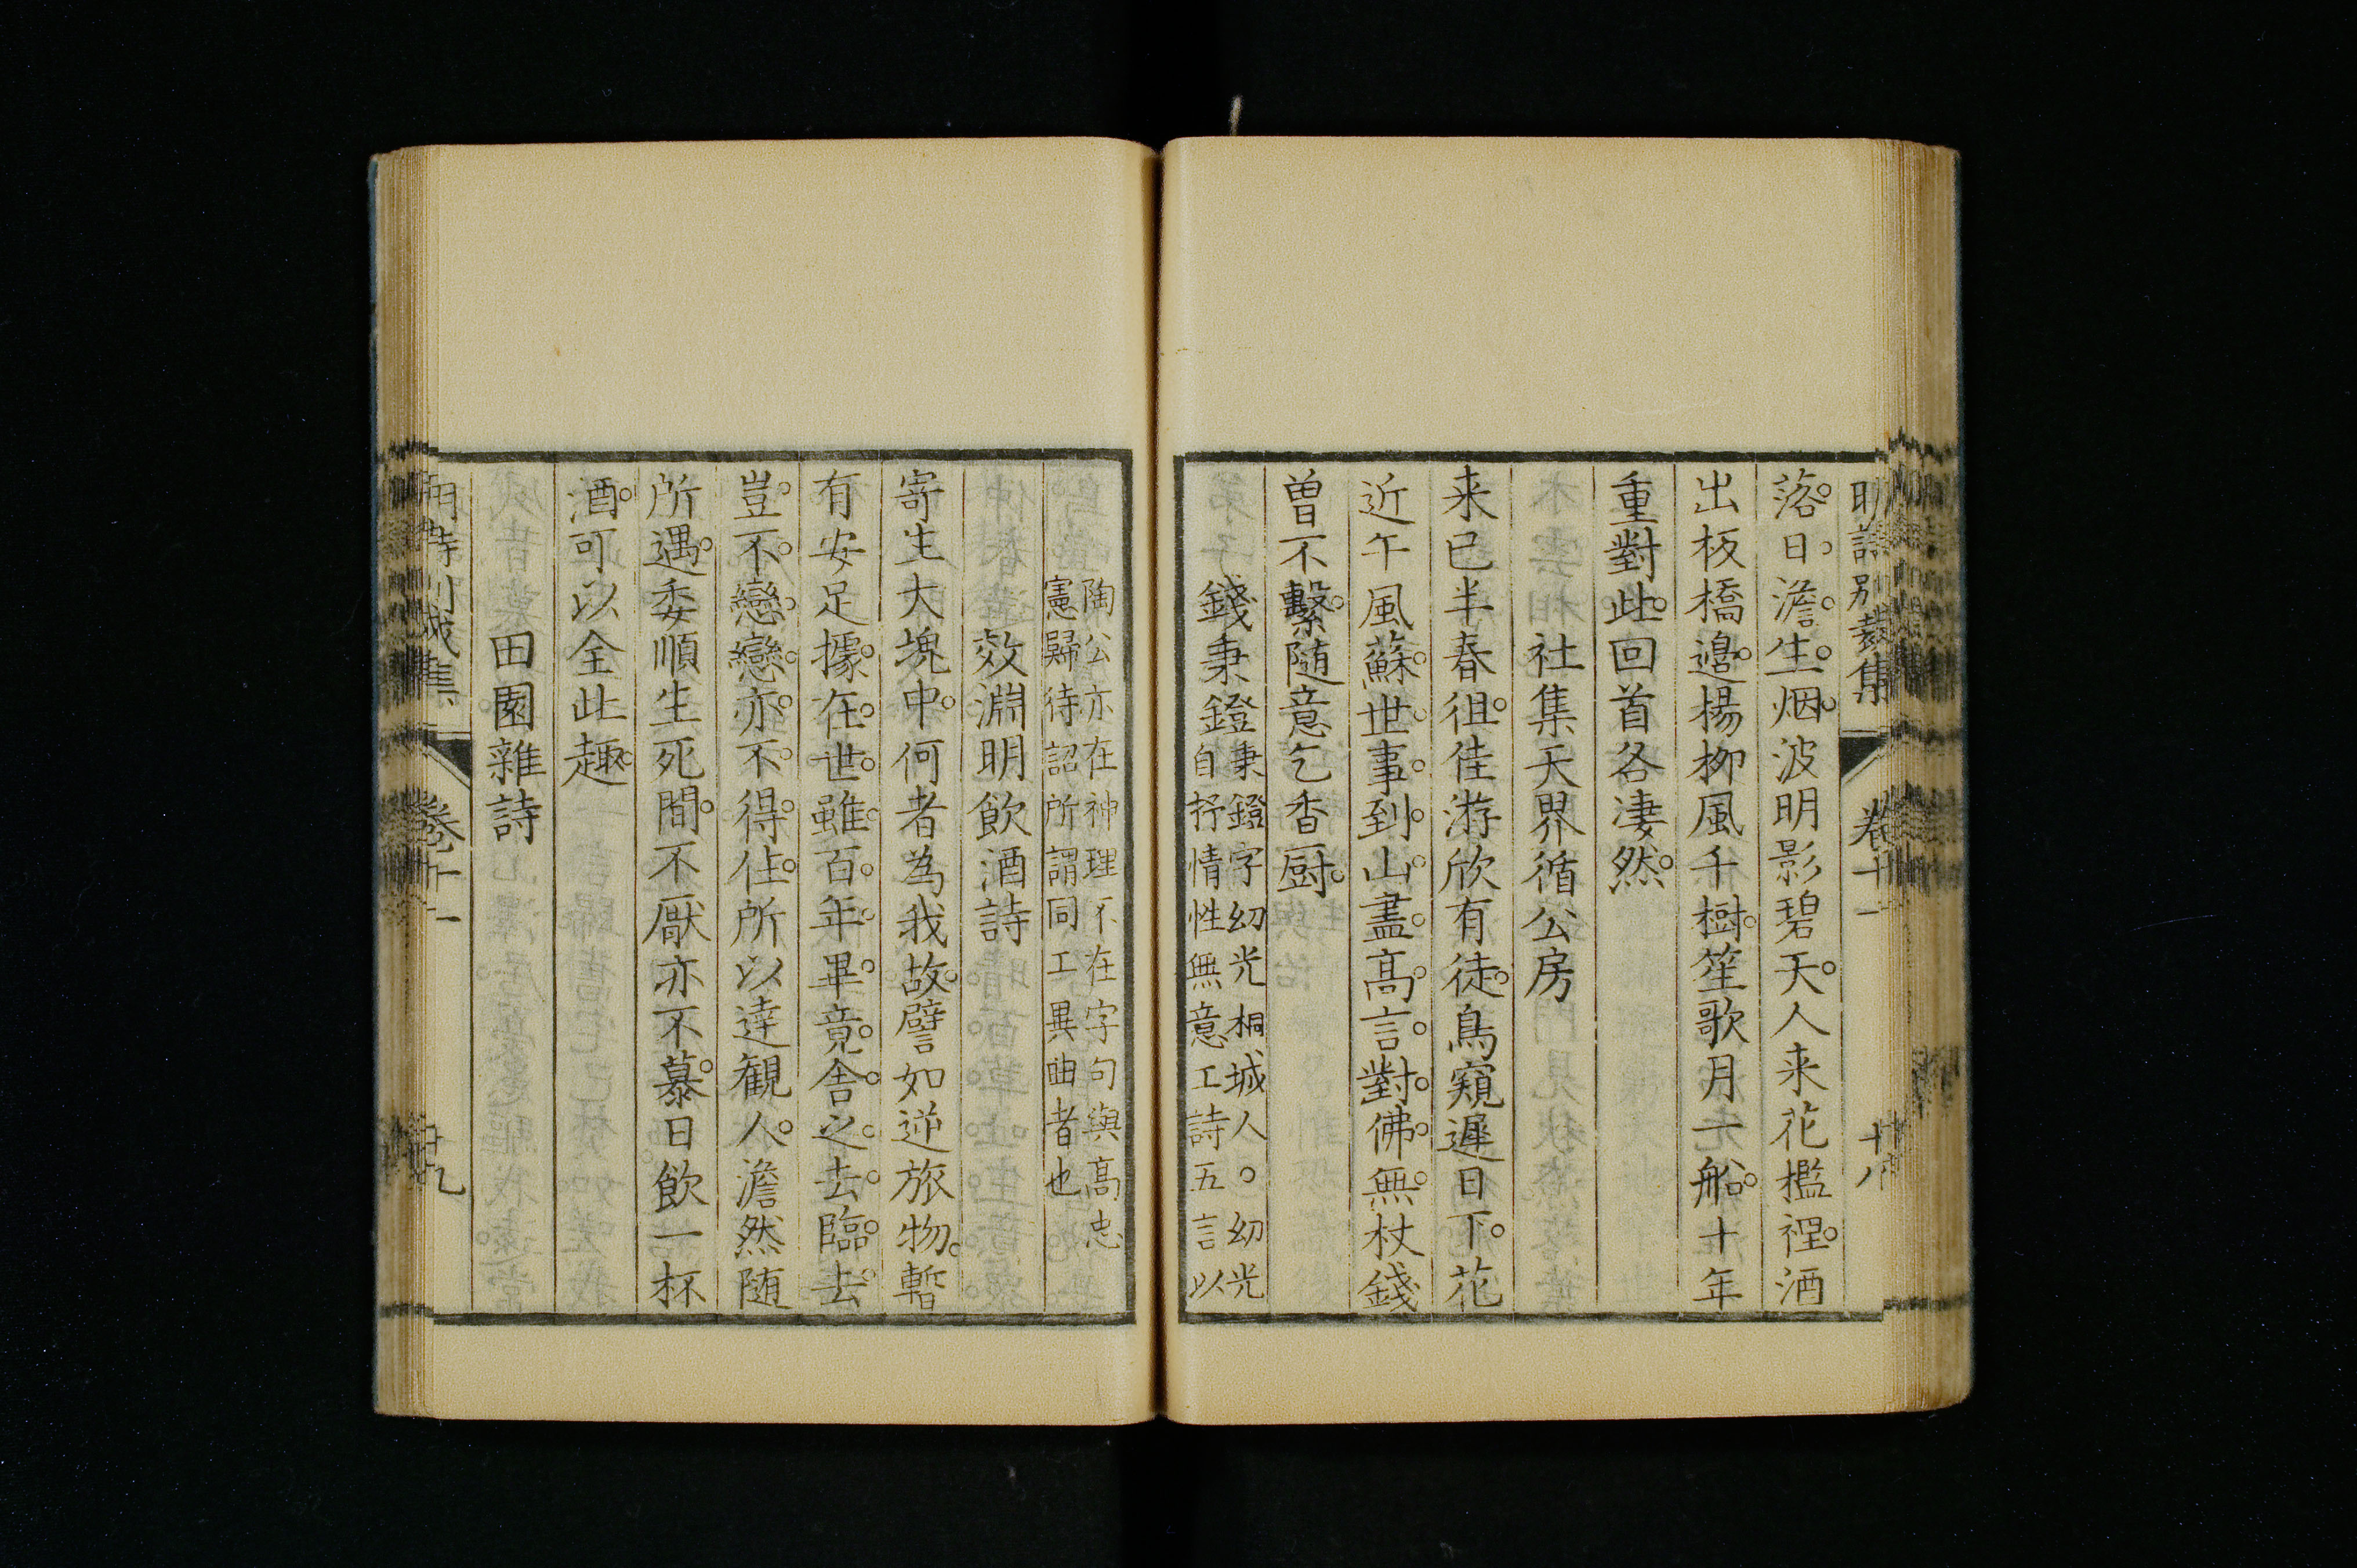 明詩別裁集 卷十一 十八
落日澹生烟波明影碧天人来花檻裡酒
出板橋邉楊栁風千樹笙歌月一船十年
重對此回首各凄然
社集天界循公房
来已半春徂佳游欣有徒鳥窺遲日下花
近午風蘇世事到山盡高言對佛無杖錢
曽不繫随意乞香厨
錢秉鐙秉鐙字幼光桐城人。幼光
自抒情性無意工詩五言以
陶公亦在神理不在字句與高忠
憲歸待詔所謂同工異曲者也
效淵明飲酒詩
寄生大塊中何者為我故譬如逆旅物暫
有安足據在世雖百年畢竟舎之去臨去
豈不戀戀亦不得住所以達観人澹然随
所遇委順生死間不厭亦不慕日飲一杯
酒可以全此趣
田園雜詩
卷十一